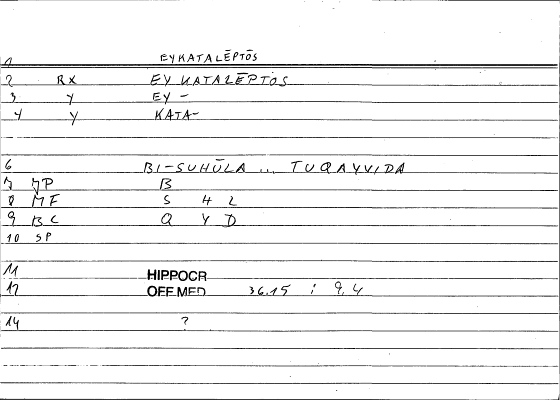 1 EYKATALĒPTŌS
2 RX EYKATALĒPTŌS
3 Y EY-
4 Y KATA-
6 BI-SUHŪLA ... TUQAYVIDA
7 JP B
8 MF S H L
9 BC Q Y D
10 SP
11 HIPPOCR
12 OFF.MED 36.15 ; 9,4
14 ?